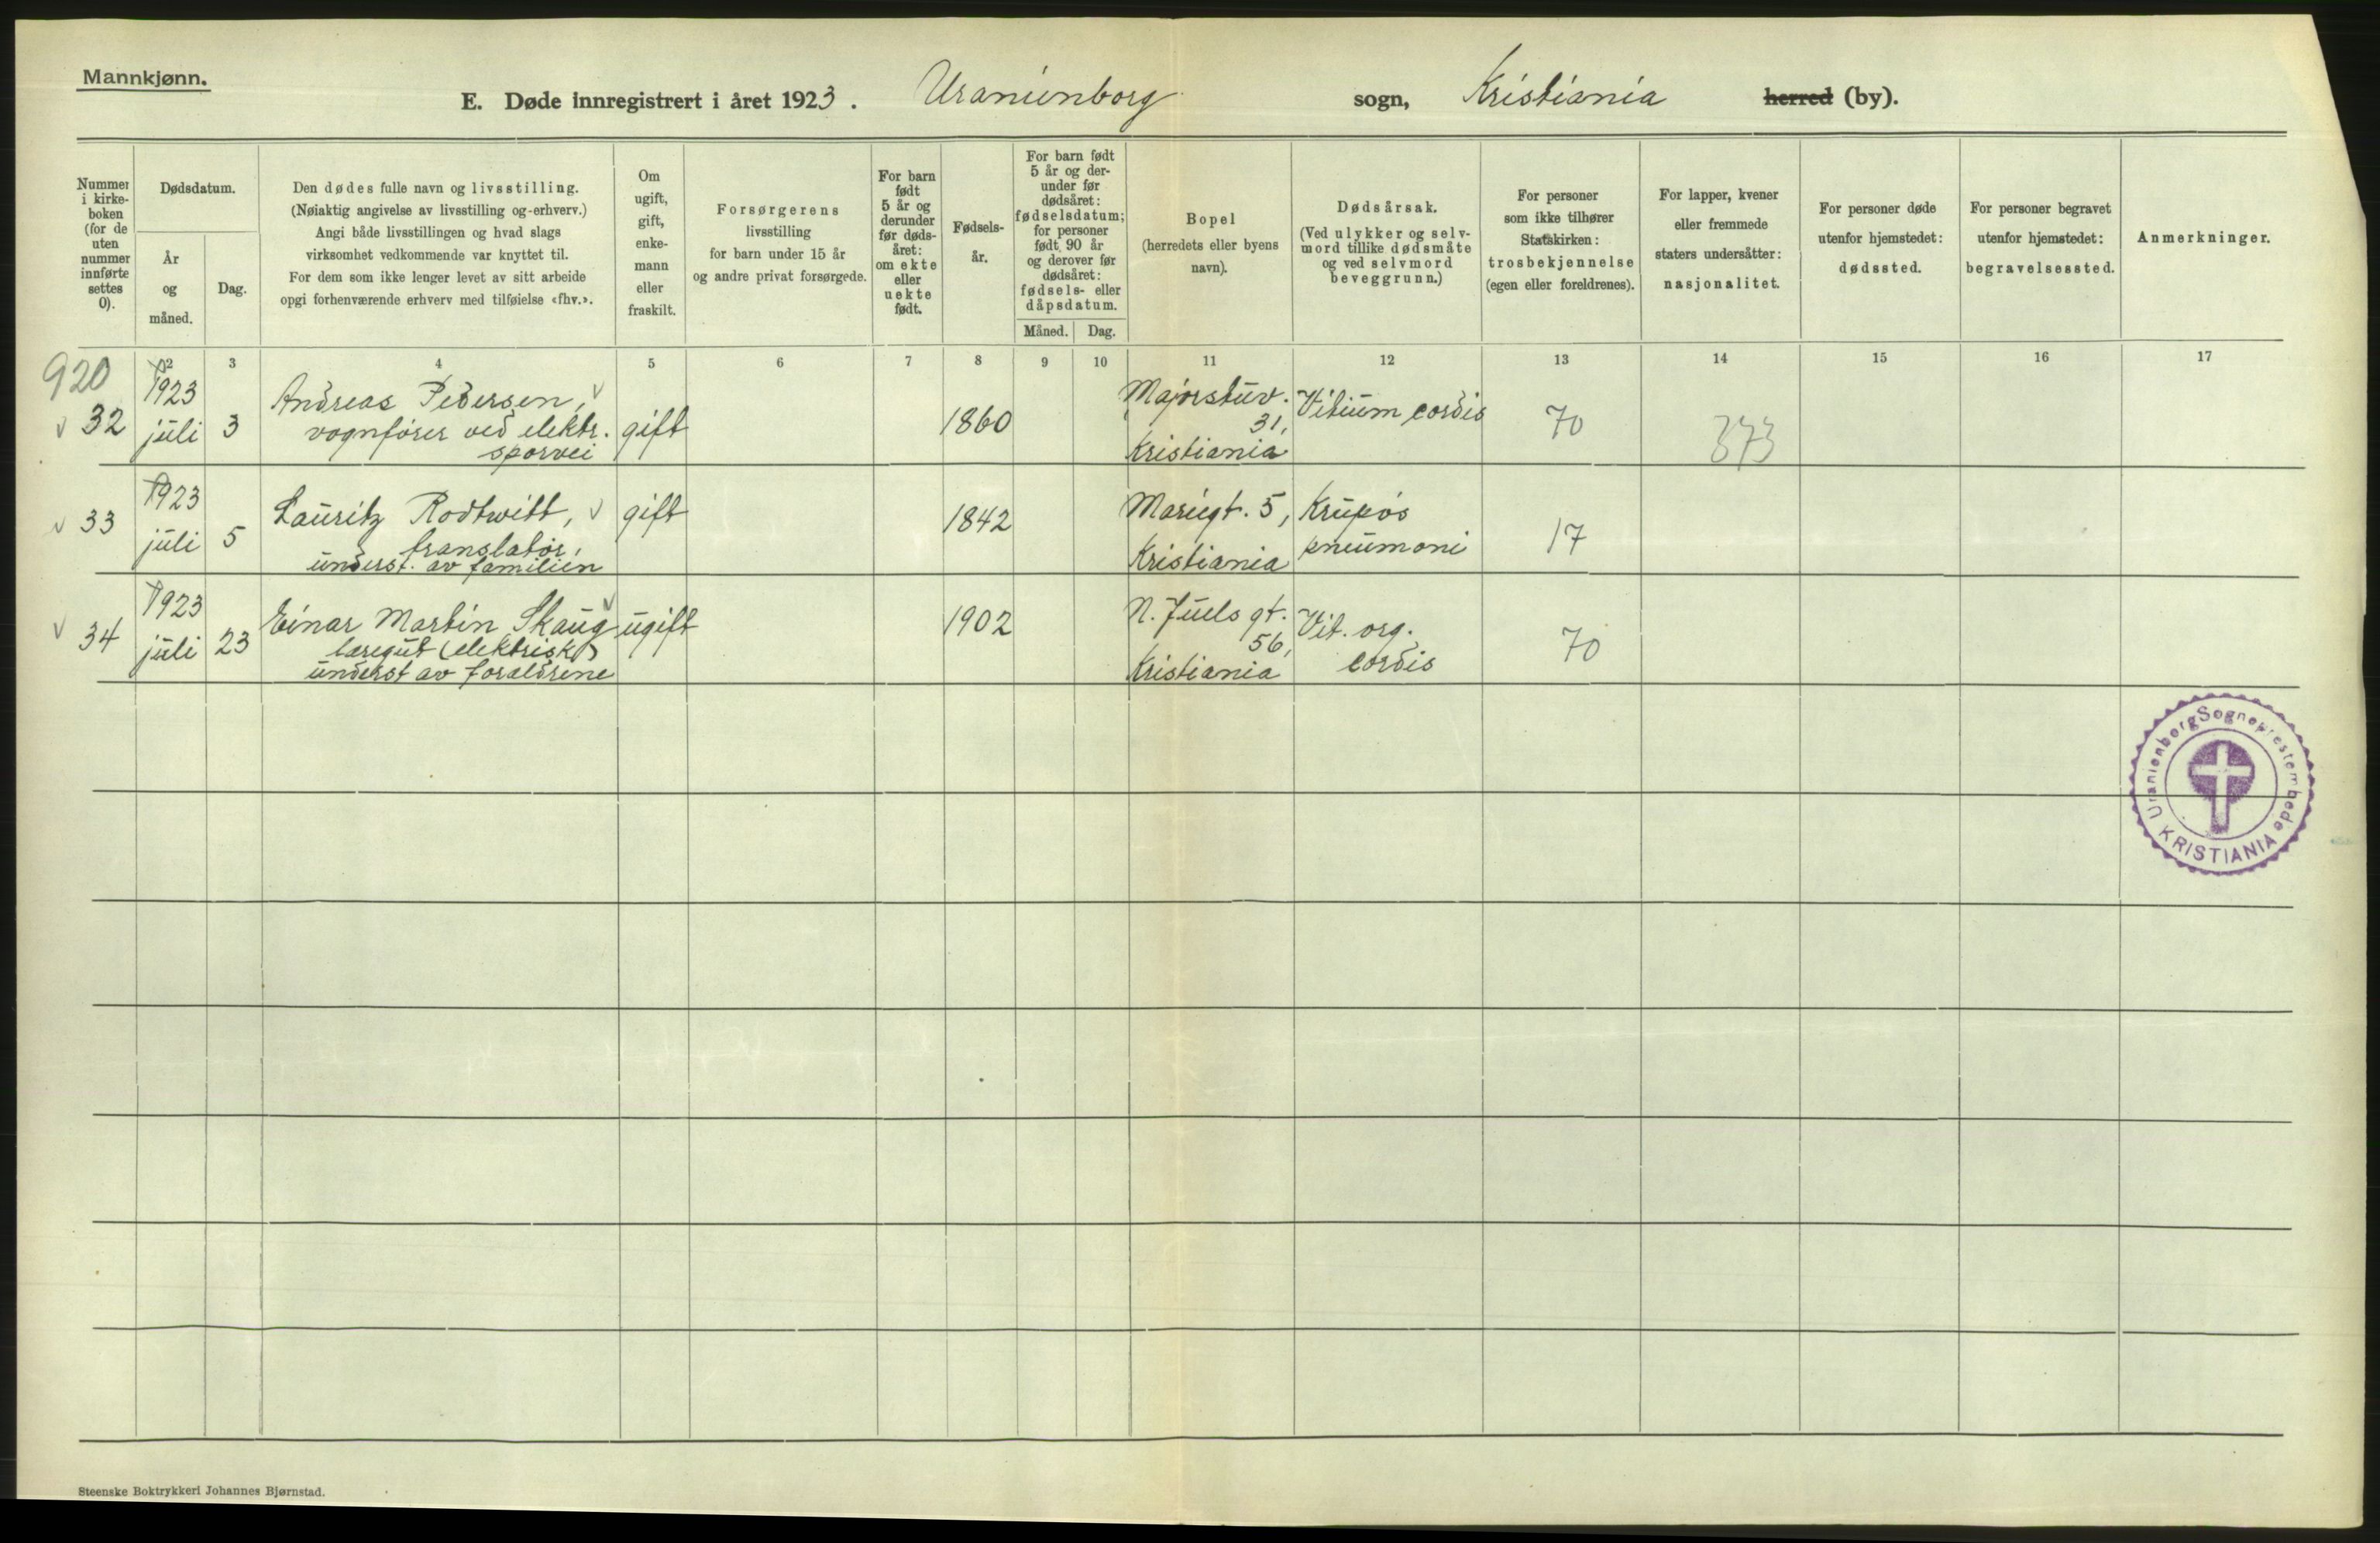 Mannkjønn.
E. Døde innregistrert i året 1923. Uranienborg sogn, Kristiania herred (by).
Nummer
i kirke-
boken
(for de
uten
nummer
innførte
settes
0).
Dødsdatum.
År
og
måned.
Dag.
Den dødes fulle navn og livsstilling.
(Nøiaktig angivelse av livsstilling og-erhverv.)
Angi både livsstillingen og hvad slags
virksomhet vedkommende var knyttet til.
For dem som ikke lenger levet av sitt arbeide
opgi forhenværende erhverv med tilføielse «fhv.».
Om
ugift,
gift,
enke-
mann
eller
fraskilt.
Forsørgerens
livsstilling
for barn under 15 år
og andre privat forsørgede.
For barn
født
5 år og
derunder
før døds-
året:
om ekte
eller
uekte
født.
Fødsels-
år.
For barn født
5 år og der-
under før
dødsåret:
fødselsdatum;
for personer
født 90 år
og derover før
dødsåret:
fødsels- eller
dåpsdatum.
Måned. Dag.
Bopel
(herredets eller byens
navn).
Dødsårsak.
(Ved ulykker og selv-
mord tillike dødsmåte
og ved selvmord
beveggrunn.)
For personer
som ikke tilhører
Statskirken:
trosbekjennelse
(egen eller foreldrenes).
For lapper, kvener
eller fremmede
staters undersåtter:
nasjonalitet.
For personer døde
utenfor hjemstedet:
dødssted.
For personer begravet
utenfor hjemstedet:
begravelsessted.
Anmerkninger.
2 3 4 5 6 7 8 9 10 11 12 13 14 15 16 17
920
32
1923
juli
3
Andreas Pedersen,
vognfører ved elektr.
sporvei
gift
1860
Majorstuv.
31,
Kristiania
Vitium cordis
70
373
33
1923
juli
5
Lauritz Rodtwitt,
translatør,
underst. av familien
gift
1842
Mariegt. 5,
Kristiania
Krupøs
pneumoni
17
34
1923
juli
23
Einar Martin Skaug
læregut (elektrisk)
underst av forældrene
ugift
1902
N. Juels gt.
56,
Kristiania
Vit. org.
cordis
70
Uranienborg Sogneprestembede
KRISTIANIA
Steenske Boktrykkeri Johannes Bjørnstad.